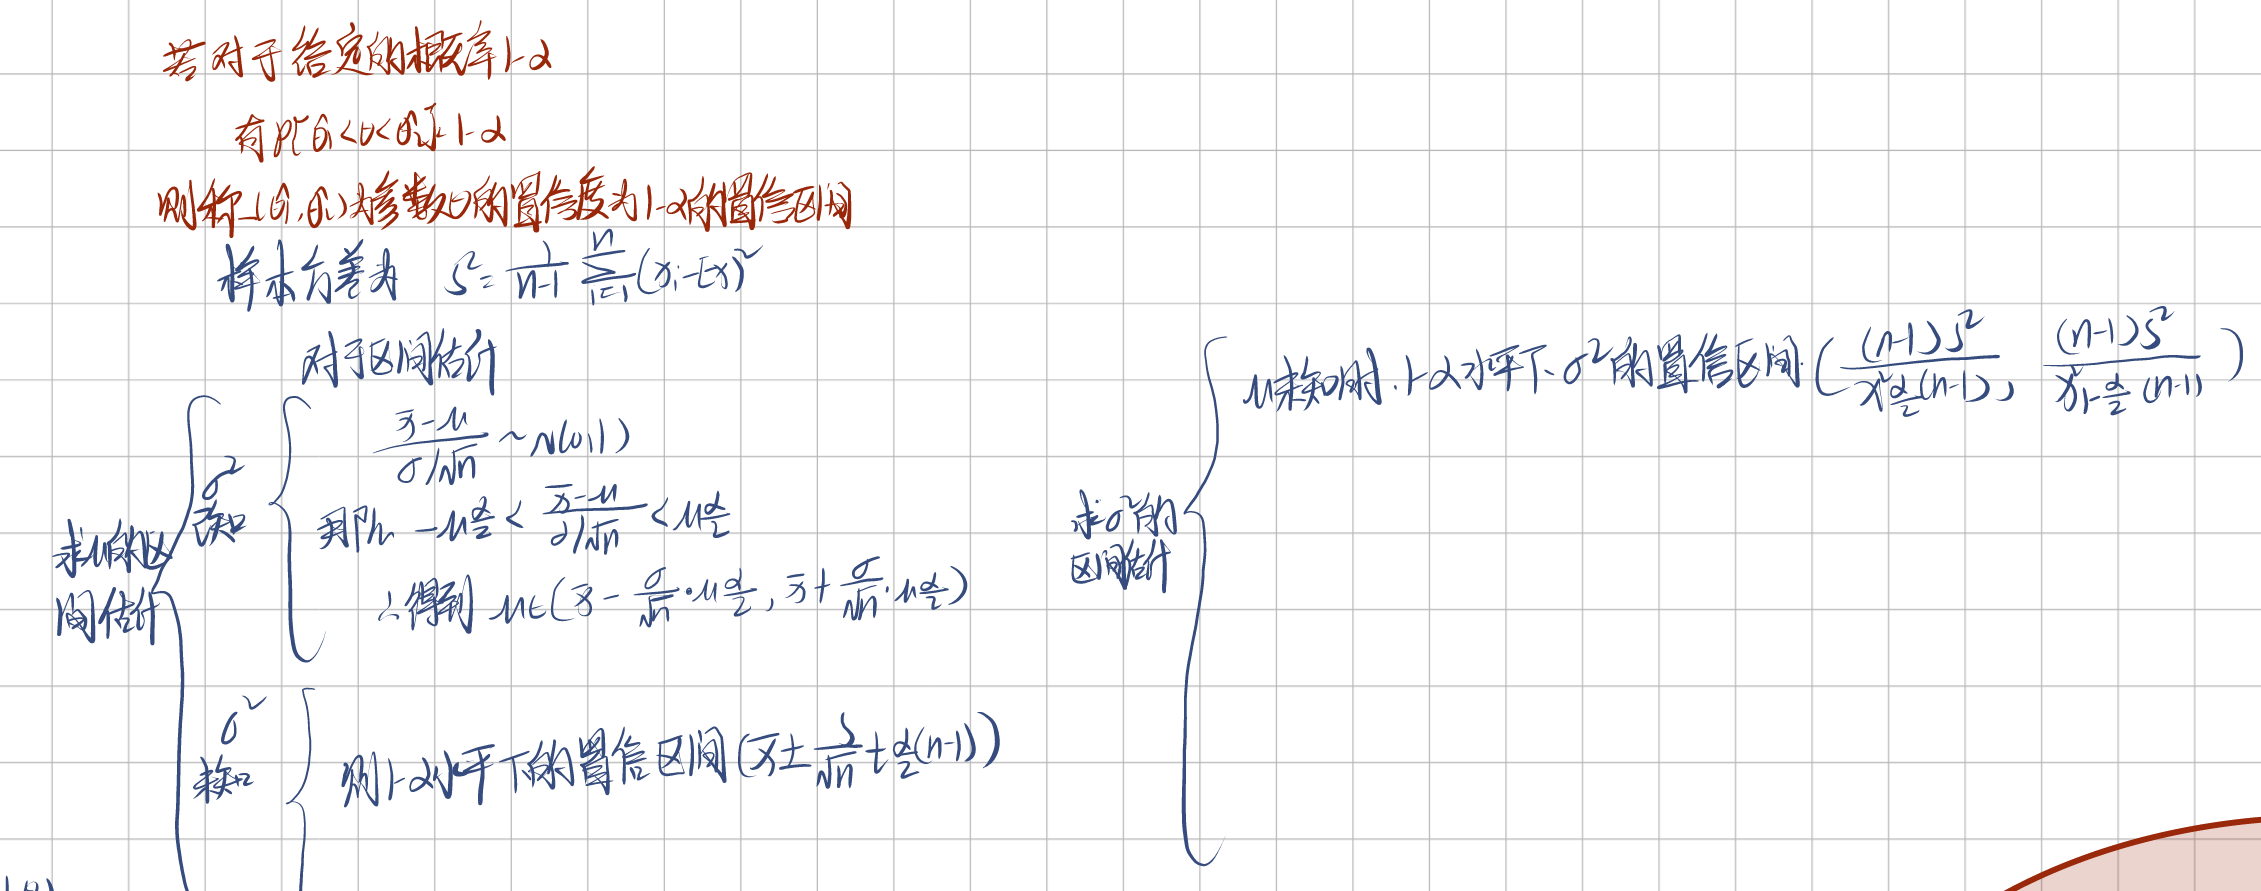 若对于给定的概率1-α
有P{θ̂₁<θ<θ̂₂}=1-α
则称(θ̂₁,θ̂₂)为参数θ的置信度为1-α的置信区间
样本方差为 S²=1/(n-1) Σ_{i=1}^{n}(x_i-Ex)²
对于区间估计
求μ的区间估计
σ²已知
(x̄-μ)/(σ/√n) ~ N(0,1)
那么 -μ_{α/2} < (x̄-μ)/(σ/√n) < μ_{α/2}
∴得到 μ∈(x̄ - σ/√n·μ_{α/2}, x̄ + σ/√n·μ_{α/2})
σ²未知
则1-α水平下的置信区间(x̄ ± S/√n t_{α/2}(n-1))
求σ²的
区间估计
μ未知时,1-α水平下、σ²的置信区间((n-1)S²/χ²_{α/2}(n-1), (n-1)S²/χ²_{1-α/2}(n-1))